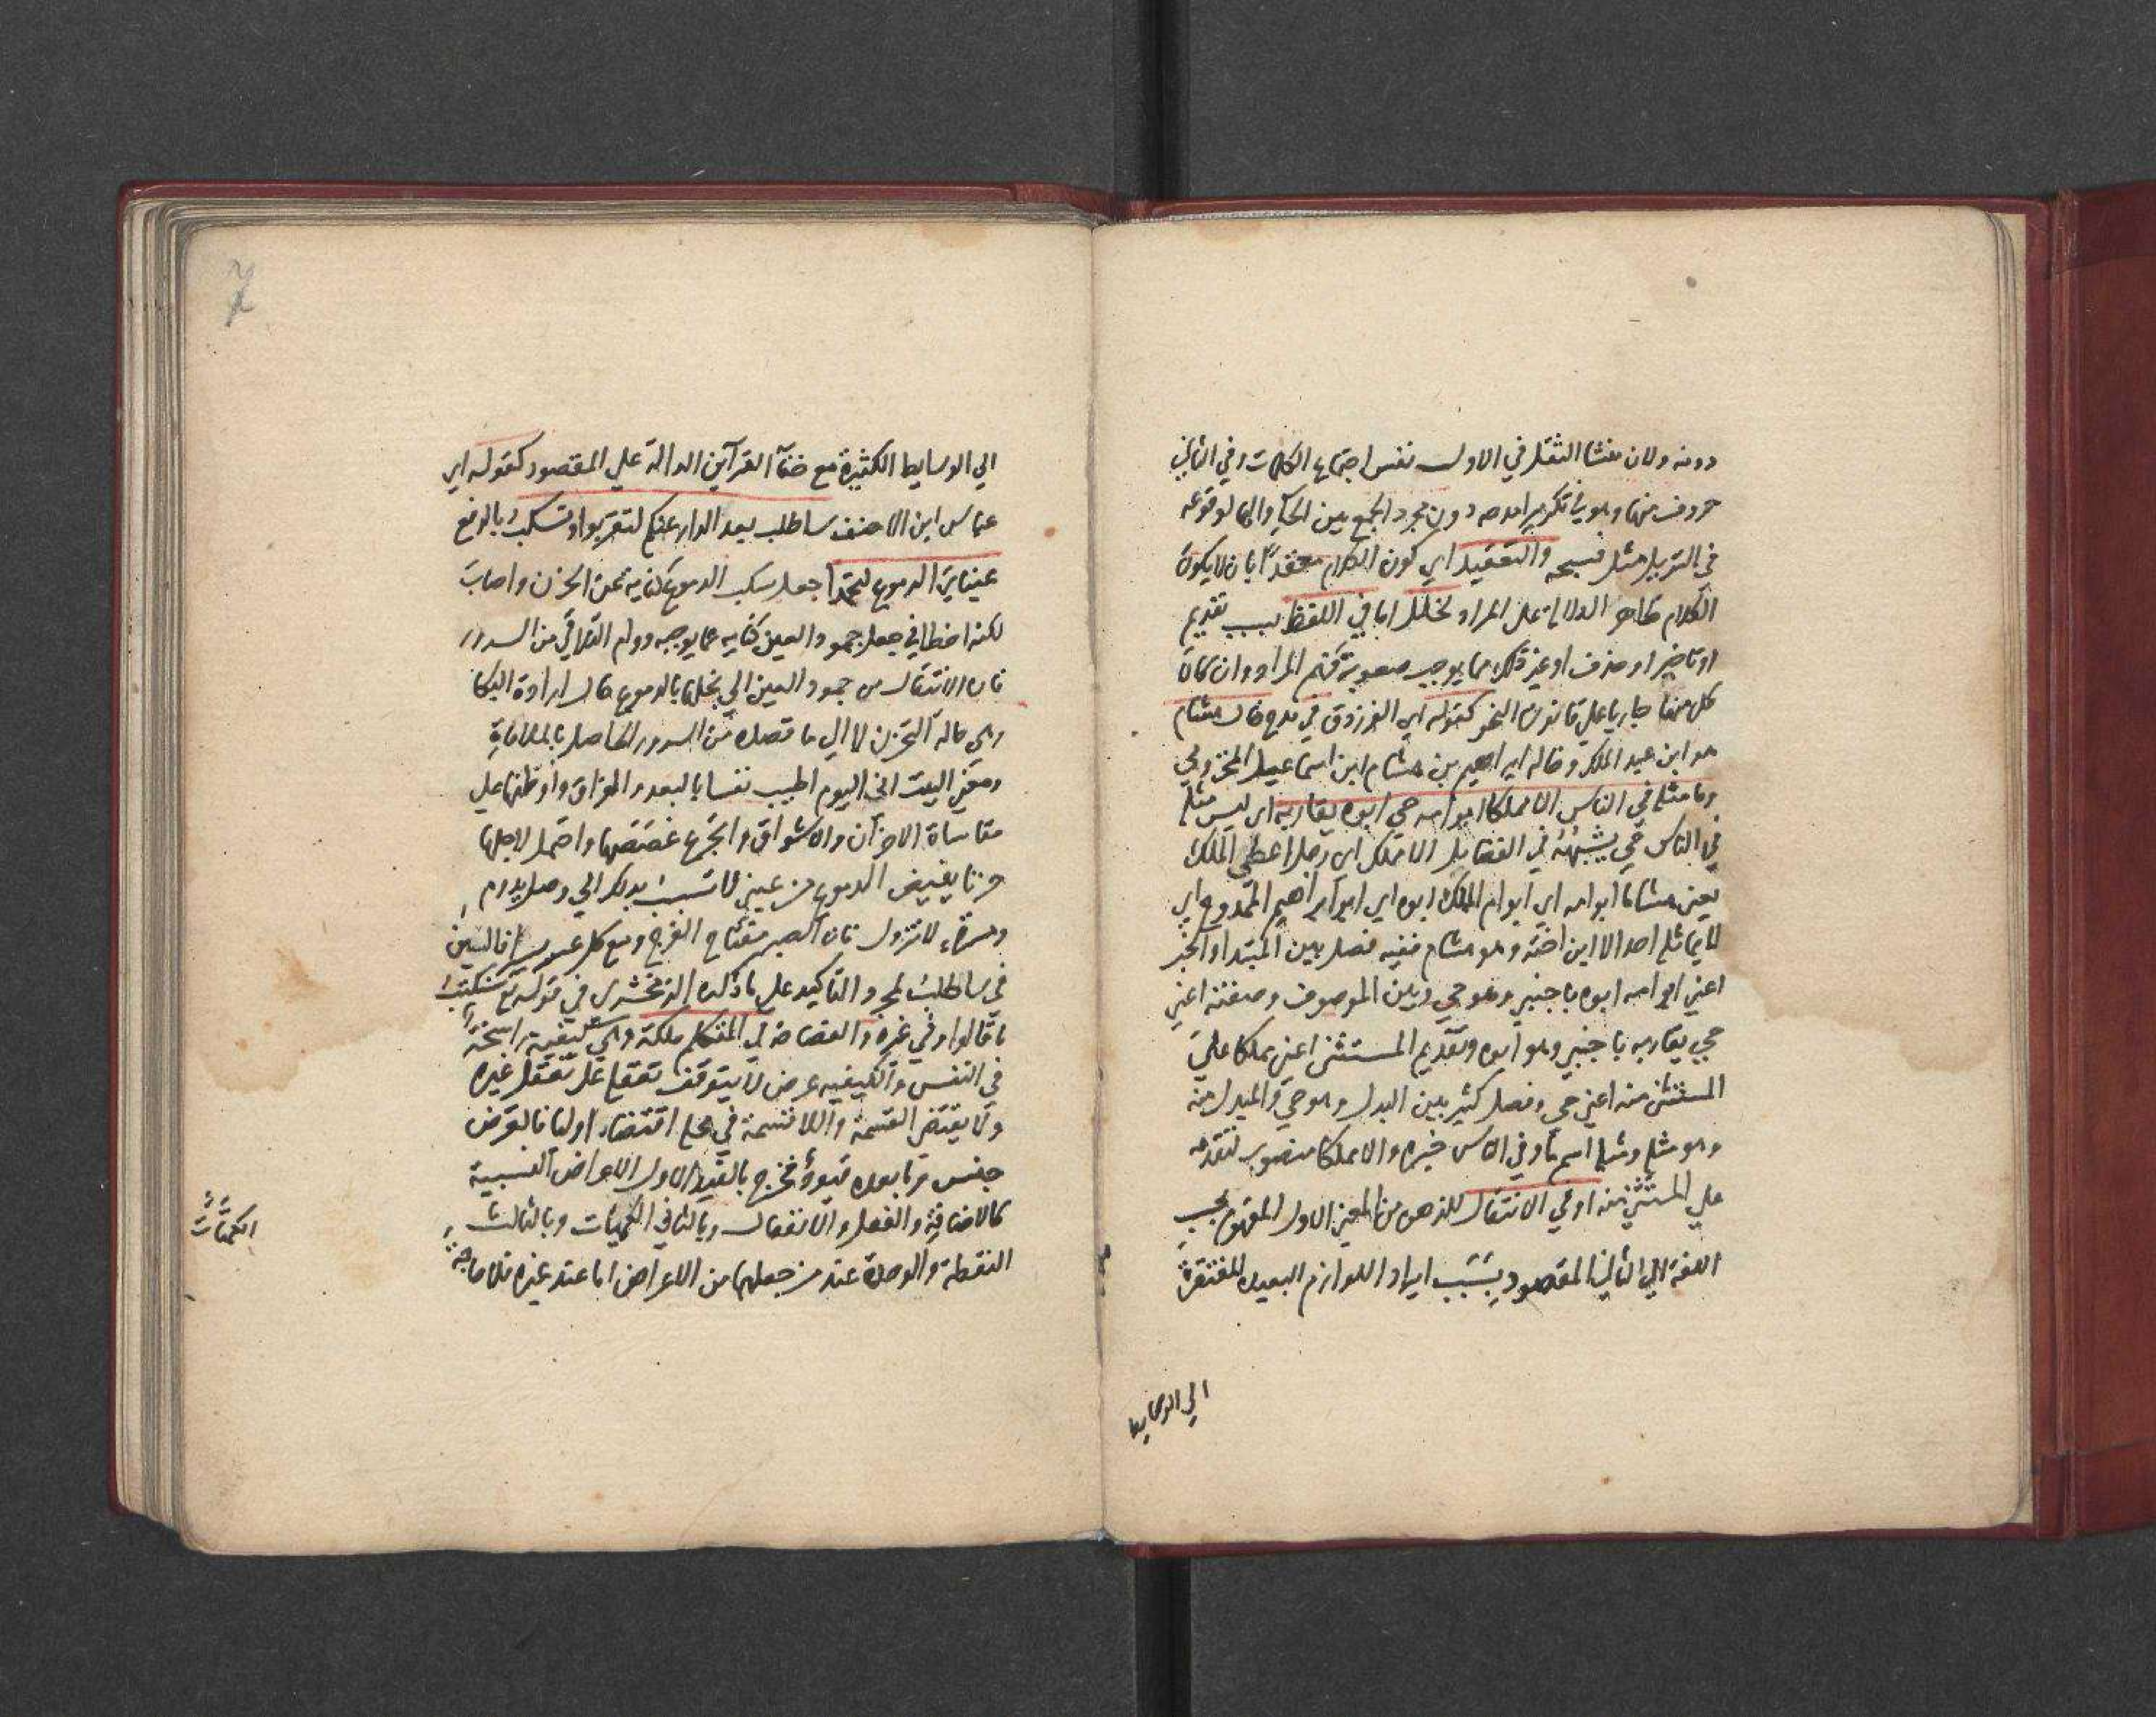 دونه ولان منشا الثقل في الاول نفس اجتماع الكلمات وفي الثاني
حروف منها وهو في تكرير امدحه دون مجرد الجمع بين الحاء والها لوقوعه
في التنزيل مثل فسبحه والتعقيد اي كون الكلام معقدًا بان لا يكون
الكلام ظاهر الدلالة على المراد لخلل اما في اللفظ بسبب تقديم
او تاخير او حذف او غير ذلك مما يوجب صعوبة فهم المراد وان كان
كل منها جاريا علي قانون النحو كقوله اي الفرزدق في مدح خال هشام
هو ابن عبد الملك وخاله ابراهيم بن هشام ابن اسماعيل المخزومي
وما مثله في الناس الا مملكا ابو امه حي ابوه يقاربه اي ليس مثله
في الناس حي يشبهه في الفضايل الا مملك اي رجل اعطي الملك
يعني هشاما ابو امه اي ابو ام الملك ابوه اي ابو ابراهيم الممدوح اي
لا يماثله احد الا ابن اخته وهو هشام ففيه فصل بين المبتدا والخبر
اعني ابو امه ابوه باجنبي وهو حي وبين الموصوف وصفته اعني
حي يقاربه باجنبي وهو ابوه وتقديم المستثنى اعني مملكا علي
المستثنى منه اعني حي وفصل كثير بين البدل وهو حي والمبدل منه
وهو مثله ومثله اسم ما وفي الناس خبره والا مملكا منصوب لتقدمه
علي المستثني منه او في الانتقال للذهن من المعني الاول المفهوم بحسب
اللغة الي الثاني المقصود بسبب ايراد اللوازم البعيده المفتقرة
الي الوسايط
الي الوسايط الكثيرة مع خفآ القرآين الدالة علي المقصود كقوله اي
عباس ابن الاحنف ساطلب بعد الدار عنكم لتقربوا وتسكب بالرفع
عيناي الدموع لتجمدا جعل سكب الدموع كنايه عن الحزن واصاب
لكنه اخطا في جعل جمود العين كنايه عما يوجبه دوام التلاقي من السرور
فان الانتقال من جمود العين الي بخلها بالدموع حال ارادة البكا
وهي حالة الحزن لا الي ما قصده من السرور الحاصل بالملاقاة
ومعني البيت اني اليوم اطيب نفسا بالبعد والفراق واوطنها علي
مقاساة الاحزان والاشواق واتجرع غصصها واحتمل لاجلها
حزنا يفيض الدموع من عيني لاتسبب بذلك الي وصل يدوم
ومسرة لا تزول فان الصبر مفتاح الفرج ومع كل عسر يسرا فالسين
في ساطلب لمجرد التاكيد علي ما ذكره الزمخشري في قوله تع سنكتب
ما قالوا وفي غيره والفصاحة في المتكلم ملكة وهي كيفية راسخة
في النفس والكيفيه عرض لا يتوقف تعقله علي تعقل غيره
ولا يقتضي القسمة واللاقسمة في محله اقتضاء اوليا فالعرض
جنس وما بعده قيود فخرج بالقيد الاول الاعراض النسبية
كالاضافة والفعل والانفعال وبالثاني الكميات وبالثالث
النقطة والوحدة عند من جعلها من الاعراض اما عند غيره فلا حاجة
الكميات